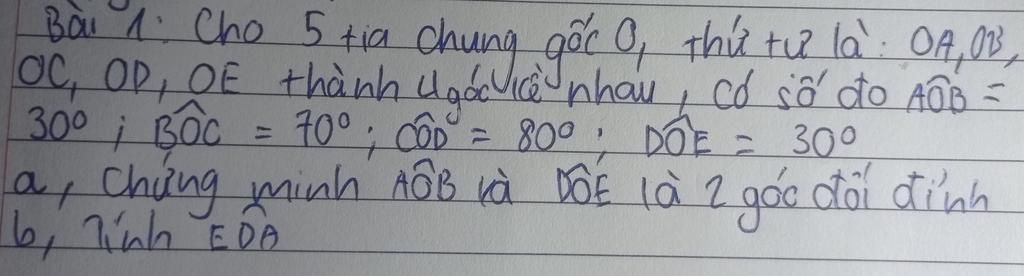 Bài 1: Cho 5 tia chung gốc O, thứ tự là: OA, OB,
OC, OD, OE thành 4 góc kề nhau, có số đo AÔB =
30° ; BÔC = 70° ; CÔD = 80° ; DÔE = 30°
a, Chứng minh AÔB và DÔE là 2 góc đối đỉnh
b, Tính EÔA